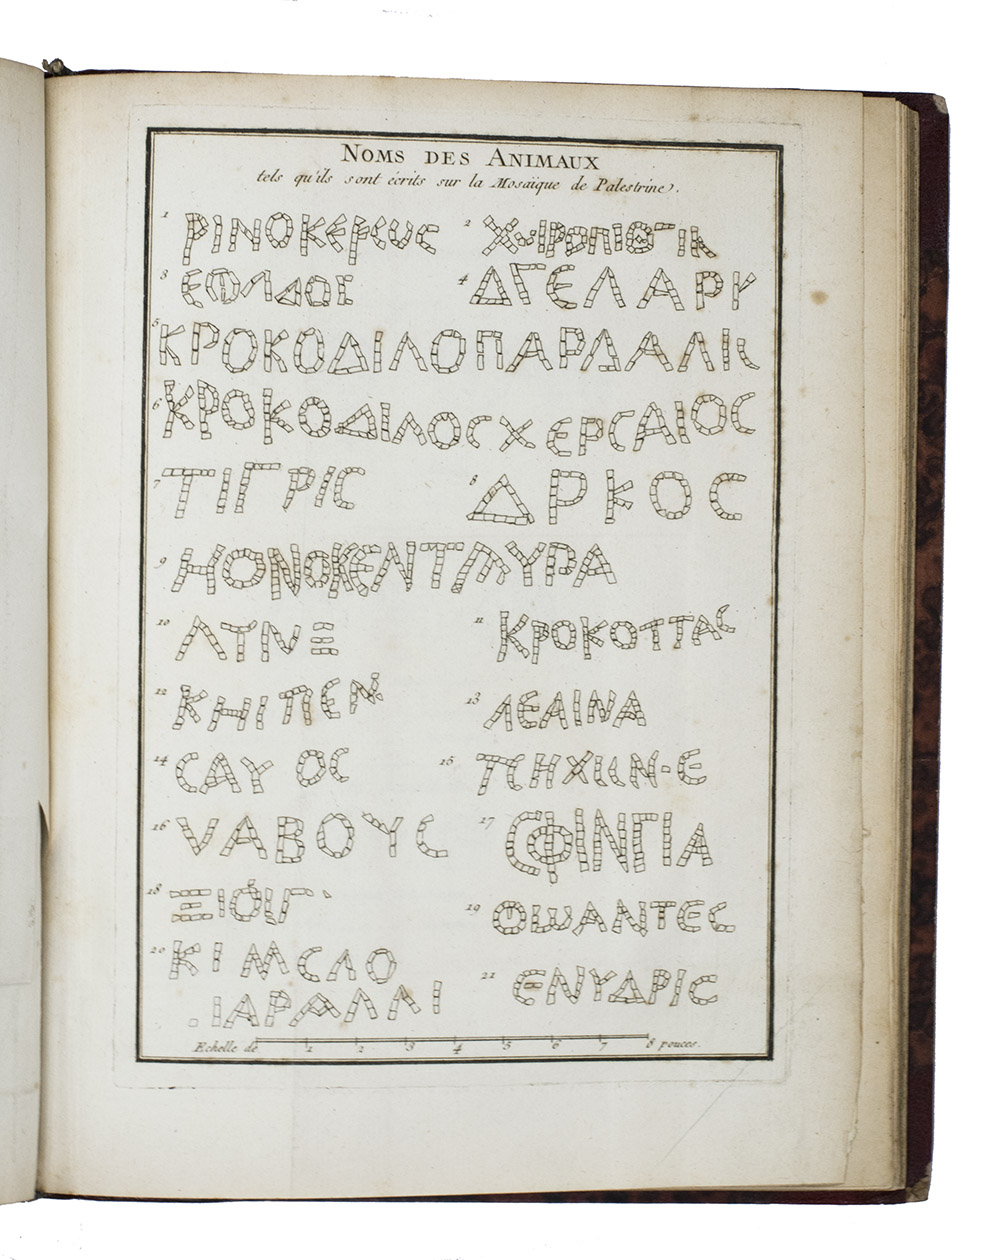 NOMS DES ANIMAUX
tels qu'ils sont écrits sur la Mosaïque de Palestrine.
1 ΡΙΝΟΚΕΡѠϹ 2 ΧѠΙΡΟΠΙΘΓΙΚ
3 ΕΦΑΛΔΟΙ 4 ΔΓΕΛΑΡΥ
5 ΚΡΟΚΟΔΙΛΟΠΑΡΔΑΛΙϹ
6 ΚΡΟΚΟΔΙΛΟϹ ΧΕΡϹΑΙΟϹ
7 ΤΙΓΡΙϹ 8 ΔΡΚΟϹ
9 ΗΟΝΟΚΕΝΤΑΥΡΑ
10 ΛΥΝΞ 11 ΚΡΟΚΟΤΤΑϹ
12 ΚΗΙΠΕΝ 13 ΛΕΑΙΝΑ
14 ϹΑΥΟϹ 15
16 VΑΒΟΥϹ 17 ϹΦΙΝΓΙΑ
18 ΞΙΟΙΓ 19 ΘѠΑΝΤΕϹ
20 ΚΙΜϹΛΟ
21 ΕΝΥΔΡΙϹ
Echelle de 1 2 3 4 5 6 7 8 pouces.